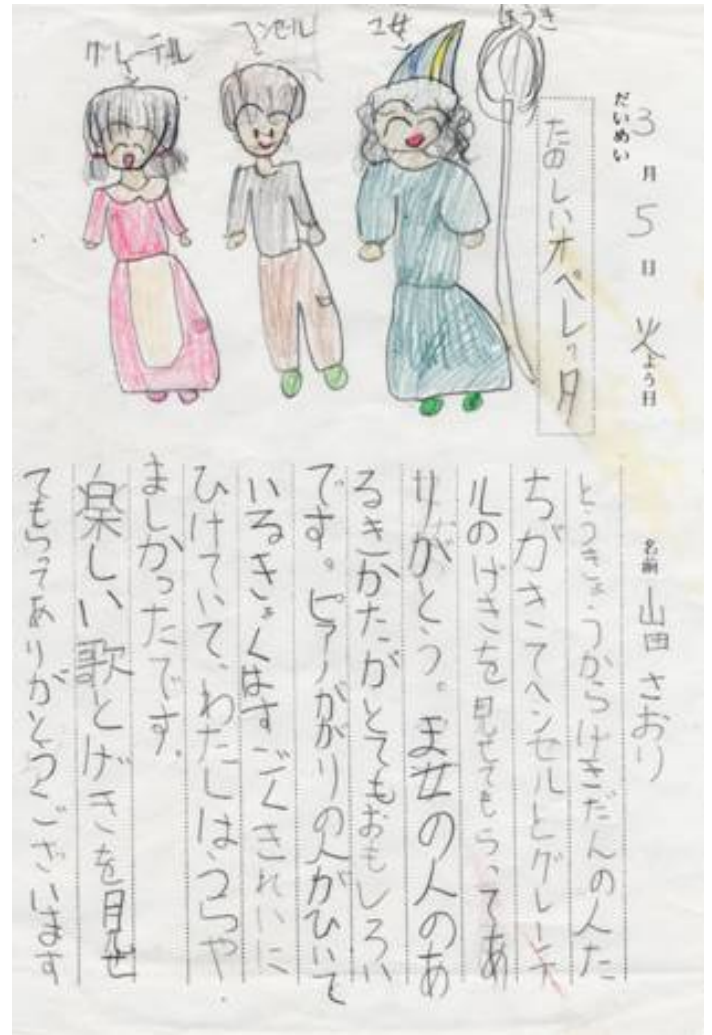 3月5日火よう日
だいめい
たのしいオペレッタ
ほうき
ま女
ヘンゼル
グレーテル
名前 山田さおり
とうきょうからげきだんの人た
ちがきてヘンゼルとグレーテ
ルのげきを見せてもらってあ
りがとう。ま女の人のあ
るきかたがとてもおもしろい
です。ピアノがかりの人がひいて
いるきょくはすごくきれいに
ひけていて、わたしはうらや
ましかったです。
楽しい歌とげきを見せ
てもらってありがとうございます